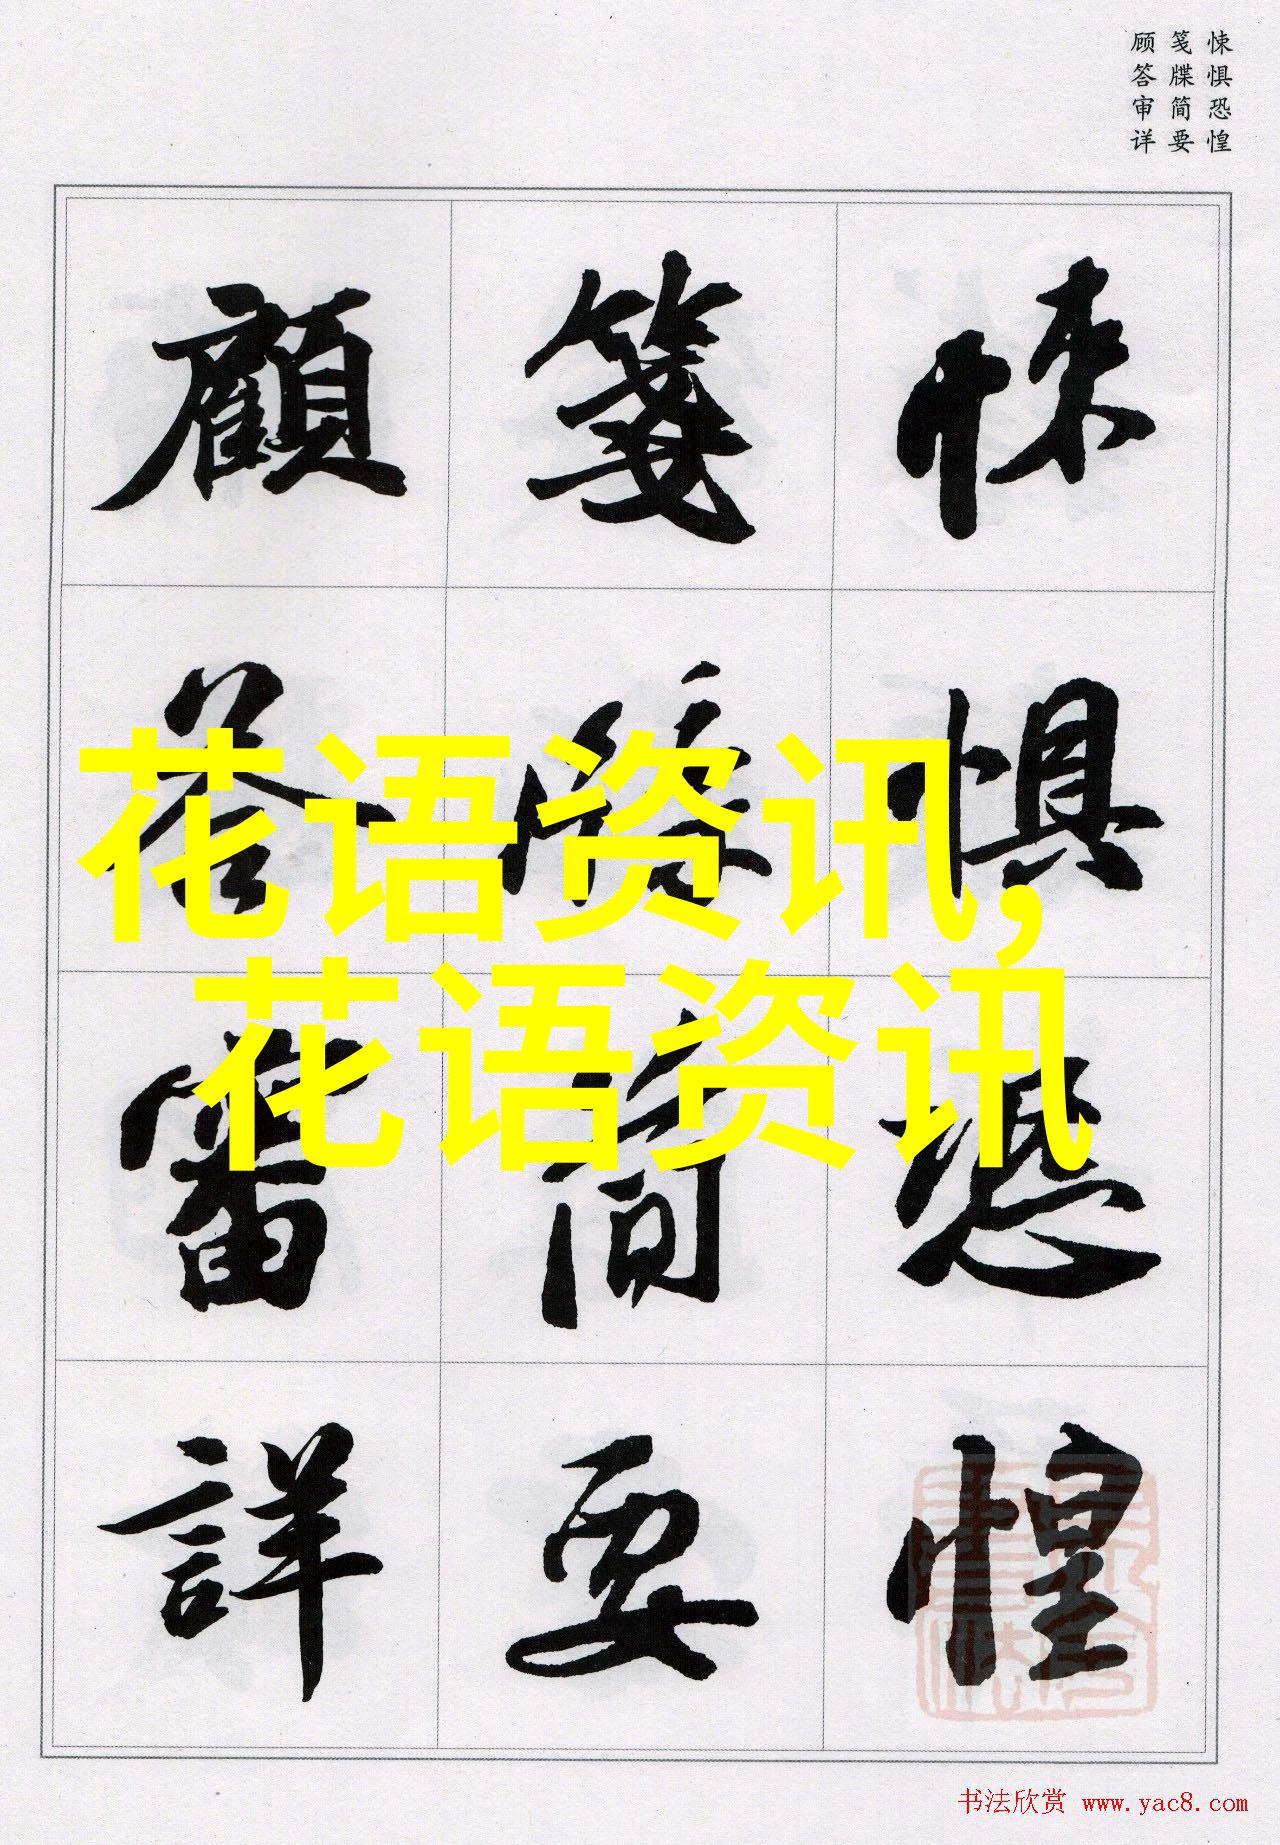 悚惧恐惶
笺牒简要
顾答审详
悚懼恐惶
箋牒简要
顧答審詳
花语资讯,
花语资讯
书法欣赏 www.yac8.com